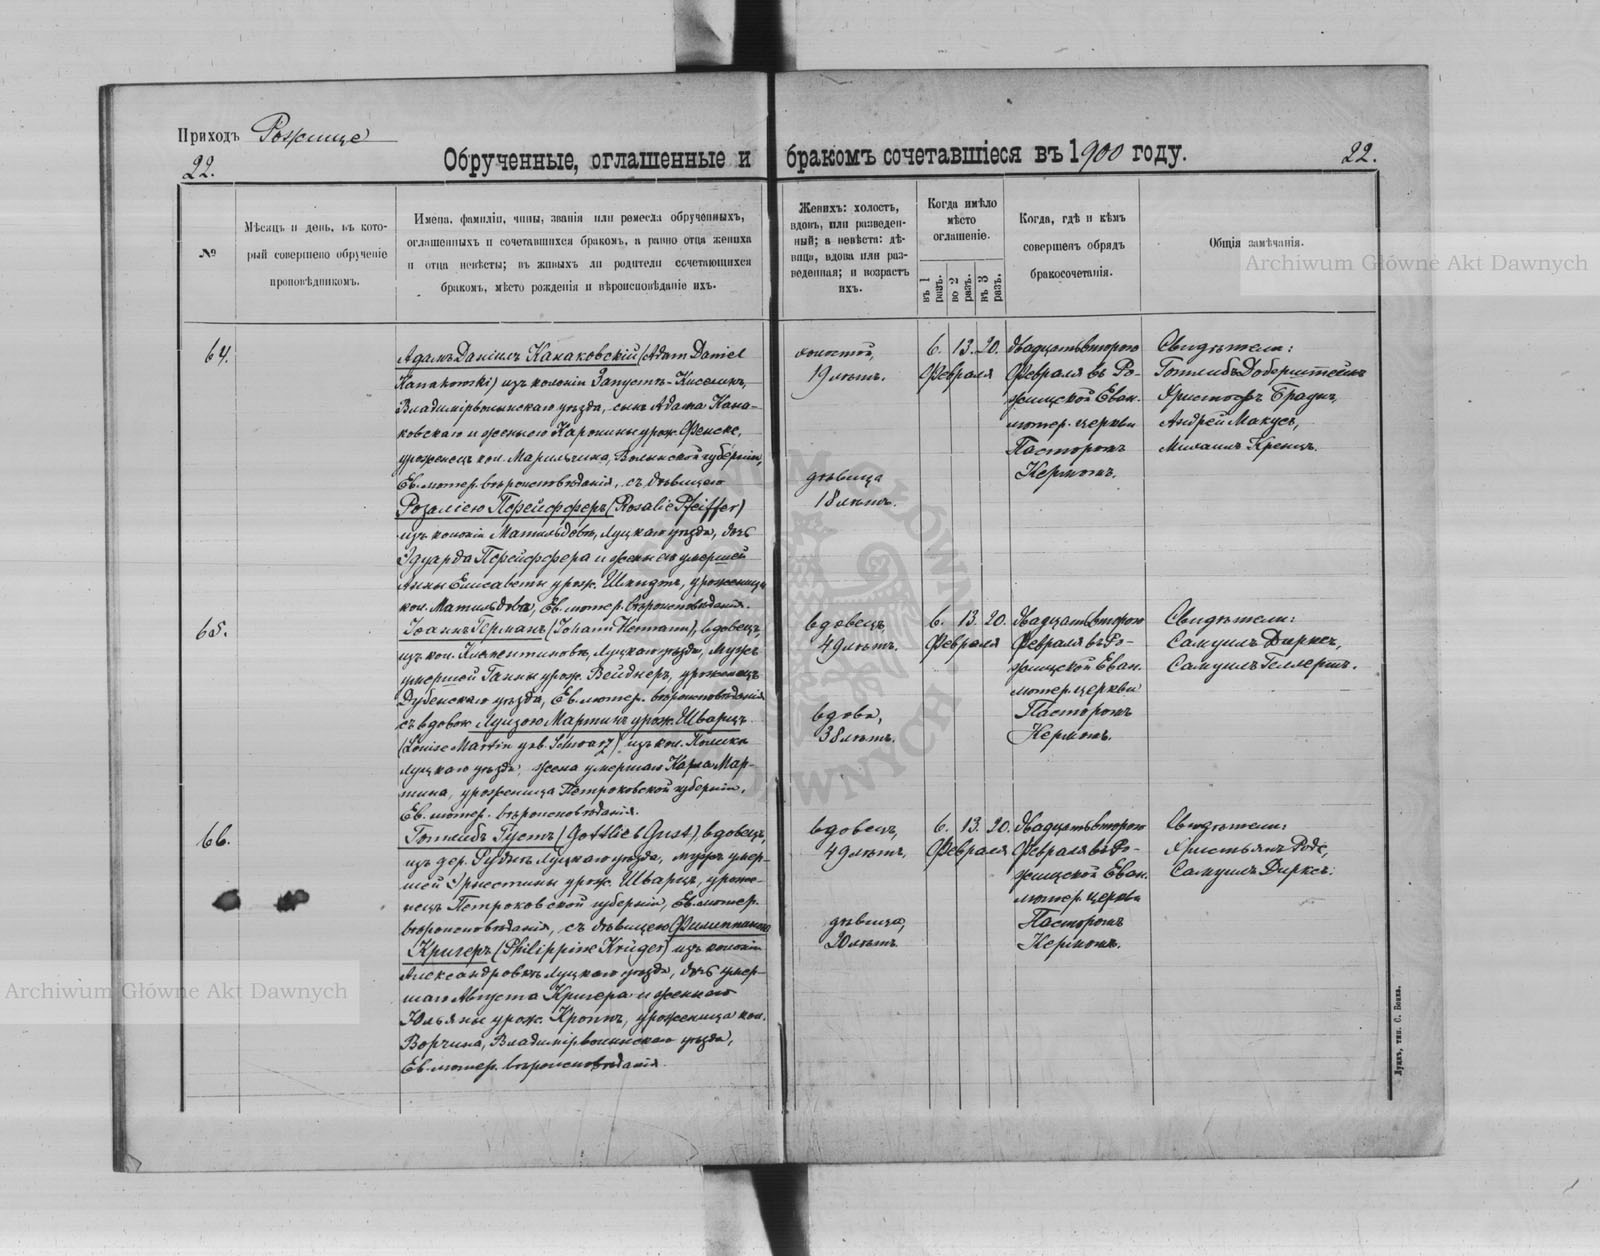 Приходъ Рожище
22.
Обрученные, оглашенные и бракомъ сочетавшіеся въ 1900 году.
22.
№
Мѣсяцъ и день, въ кото-
рый совершено обрученіе
проповѣдникомъ.
Имена, фамиліи, чины, званія или ремесла обрученныхъ,
оглашенныхъ и сочетавшихся бракомъ, а равно отца жениха
и отца невѣсты; въ живыхъ ли родители сочетающихся
бракомъ, мѣсто рожденія и вѣроисповѣданіе ихъ.
Женихъ: холостъ,
вдовъ, или разведен-
ный; а невѣста: дѣ-
вица, вдова или раз-
веденная; и возрастъ
ихъ.
Когда имѣло
мѣсто
оглашеніе.
въ 1
разъ.
во 2
разъ.
въ 3
разъ.
Когда, гдѣ и кѣмъ
совершенъ обрядъ
бракосочетанія.
Общія замѣчанія.
64.
Адамъ Даніилъ Канаковскій (Adam Daniel
Kanakowski) изъ колоніи Запустъ-Киселинъ,
Владимірволынскаго уѣзда, сынъ Адама Кана-
ковскаго и женыего Каролины урож. Фенске,
уроженецъ кол. Марильчина, Волынской губерніи,
Ев. лютер. вѣроисповѣданія, съ дѣвицею
Розаліею Пфейфферъ (Rosalie Pfeiffer)
изъ колоніи Матильдовъ, Луцкаго уѣзда, дочь
Эдуарда Пфейффера и жены его умершей
Анны Елисаветы урож. Шмидтъ, уроженица
кол. Матильдовъ, Ев. лютер. вѣроисповѣданія.
холостой,
19 лѣтъ.
дѣвица
18 лѣтъ.
6. 13. 20.
Февраля
двадцать второго
Февраля въ Ро-
жищской Еван.
лютер. церкви
Пасторомъ
Кермомъ.
Свидѣтели:
Готлибъ Доберштейнъ
Христофъ Брадъ,
Андрей Макусъ,
Михаилъ Кренцъ.
65.
Іоаннъ Германъ (Johann Hermann), вдовецъ,
изъ кол. Клементиновъ, Луцкаго уѣзда, мужъ
умершой Ганны урож. Вейднеръ, уроженецъ
Дубенскаго уѣзда, Ев. лютер. вѣроисповѣданія
съ вдовою Луизою Мартинъ урож. Шварцъ
(Louise Martin geb. Schwarz) изъ кол. Полинка
Луцкаго уѣзда, жена умершаго Карла Мар-
тина, уроженица Петроковской губерніи,
Ев. лютер. вѣроисповѣданія.
вдовецъ,
49 лѣтъ.
вдова,
38 лѣтъ.
6. 13. 20.
Февраля
двадцать второго
Февраля въ Ро-
жищской Еван.
лютер. церкви
Пасторомъ
Кермомъ.
Свидѣтели:
Самуилъ Дирксъ,
Самуилъ Геллертъ.
66.
Готлибъ Густъ (Gottlieb Gust), вдовецъ,
изъ дер. Рудни Луцкаго уѣзда, мужъ умер-
шей Эрнестины урож. Шварцъ, уроже-
нецъ Петроковской губерніи, Ев. лютер.
вѣроисповѣданія, съ дѣвицею Филиппиною
Кригеръ (Philippine Krüger) изъ колоніи
Александровка Луцкаго уѣзда, дочь умер-
шаго Августа Кригера и жены его
Юльяны урож. Кроппъ, уроженица кол.
Ворчина, Владимірволынскаго уѣзда,
Ев. лютер. вѣроисповѣданія.
вдовецъ,
49 лѣтъ,
дѣвица,
20 лѣтъ
6. 13. 20.
Февраля
двадцать второго
Февраля въ Ро-
жищской Еван.
лютер. церкви
Пасторомъ
Кермомъ.
Свидѣтели:
Христьянъ Роде,
Самуилъ Дирксъ.
Луцкъ, тип. С. Бонка.
Archiwum Główne Akt Dawnych
Archiwum Główne Akt Dawnych